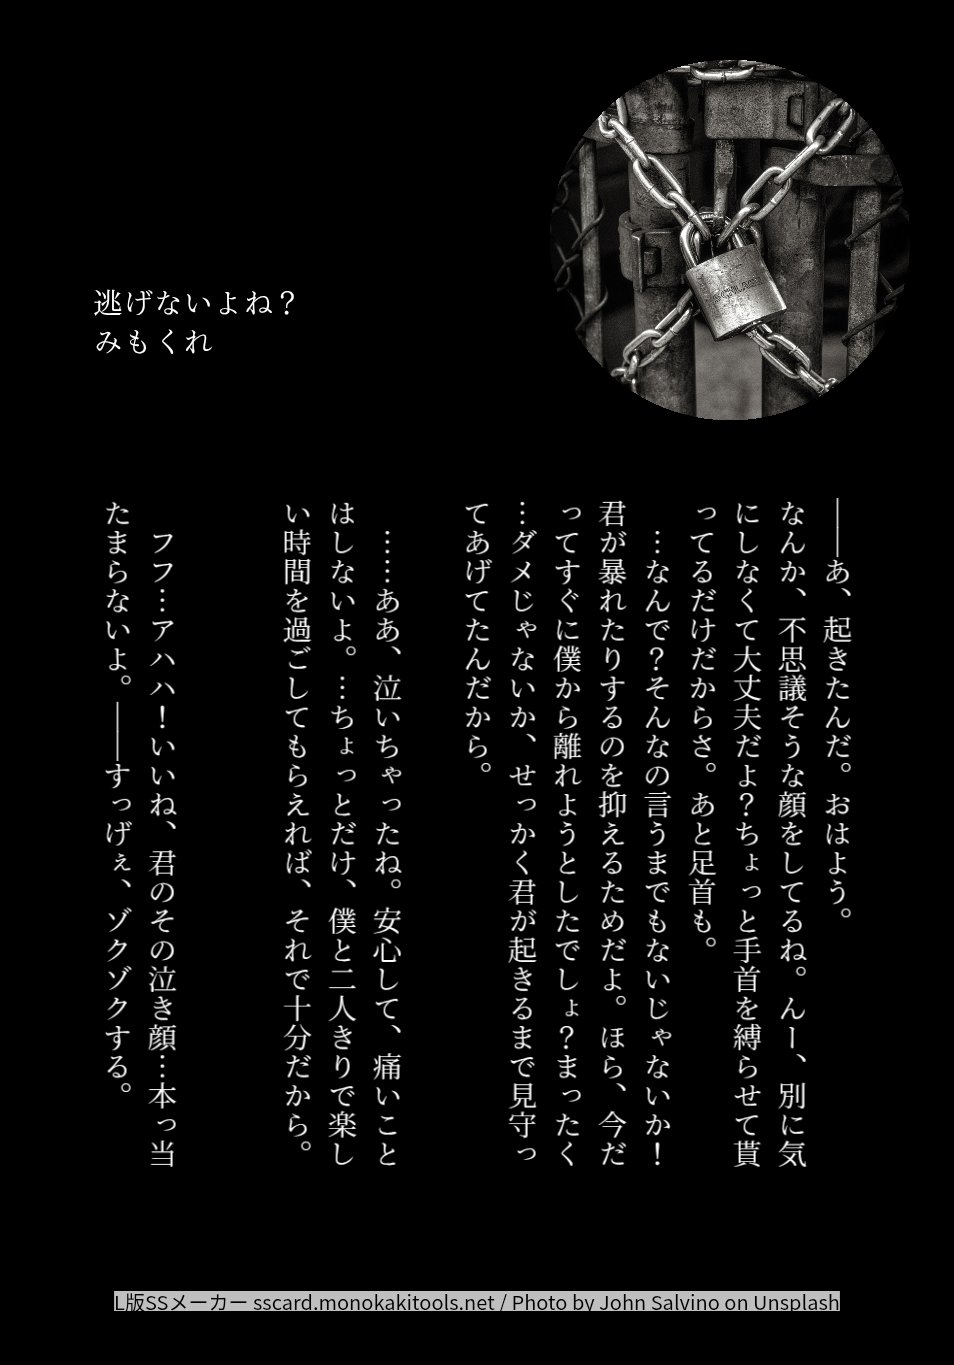 逃げないよね？
みもくれ
――あ、起きたんだ。おはよう。
なんか、不思議そうな顔をしてるね。んー、別に気
にしなくて大丈夫だよ？ちょっと手首を縛らせて貰
ってるだけだからさ。あと足首も。
…なんで？そんなの言うまでもないじゃないか！
君が暴れたりするのを抑えるためだよ。ほら、今だ
ってすぐに僕から離れようとしたでしょ？まったく
…ダメじゃないか、せっかく君が起きるまで見守っ
てあげてたんだから。
……ああ、泣いちゃったね。安心して、痛いこと
はしないよ。…ちょっとだけ、僕と二人きりで楽し
い時間を過ごしてもらえれば、それで十分だから。
フフ…アハハ！いいね、君のその泣き顔…本っ当
たまらないよ。――すっげぇ、ゾクゾクする。
L版SSメーカー sscard.monokakitools.net / Photo by John Salvino on Unsplash